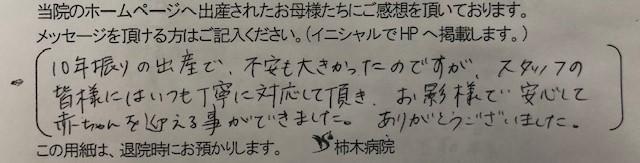 当院のホームページへ出産されたお母様たちにご感想を頂いております。
メッセージを頂ける方はご記入ください。(イニシャルでHPへ掲載します。)
10年振りの出産で、不安も大きかったのですが、スタッフの
皆様にはいつも丁寧に対応して頂き、お影様で安心して
赤ちゃんを迎える事ができました。ありがとうございました。
この用紙は、退院時にお預かりします。 柿木病院